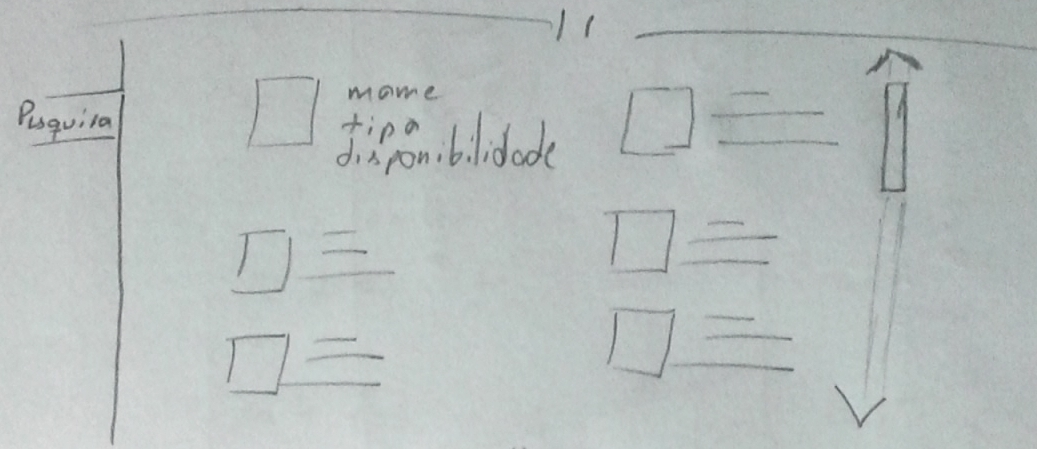 Pesquisa
nome
tipo
disponibilidade